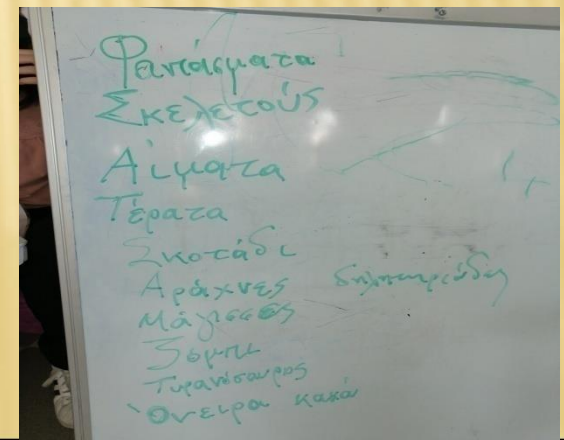 Φαντάσματα
Σκελετούς
Αίματα
Τέρατα
Σκοτάδι
Αράχνες δηλητηριώδη
Μάγισσες
Ζόμπι
Τυρανόσαυρος
Όνειρα κακά